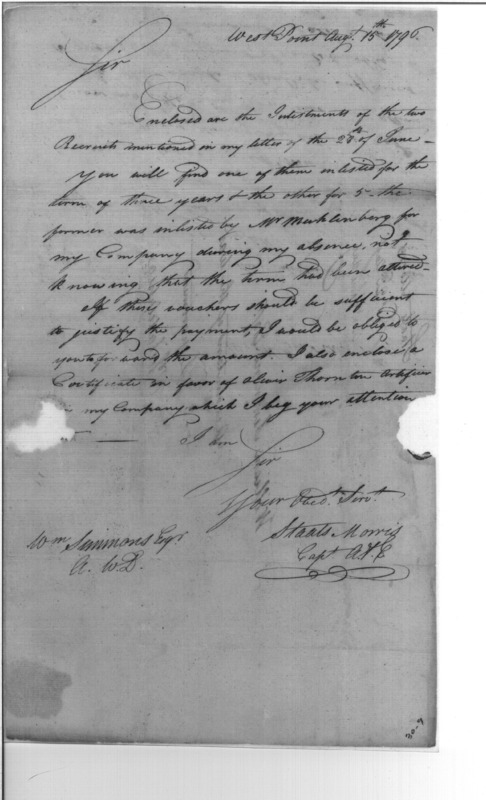 West Point Augt. 15th 1796.
Sir
Enclosed are the Inlistments of the two
Recruits mentioned in my letter of the 27th of June –
You will find one of them inlisted for the
term of three years & the other for 5 – the
former was inlisted by Mr Mecklenberg for
my Company during my absence, not
knowing that the term had been altered –
If these vouchers should be sufficient
to justify the payment, I would be obliged to
you to forward the amount. I also enclose a
Certificate in favor of Oliver Thornton Artificer
my Company which I beg your attention
I am
Sir
Your Obedt. Servt.
Staats Morris
Capt A & E
Wm Simmons Esqr
A. W. D.
30-9